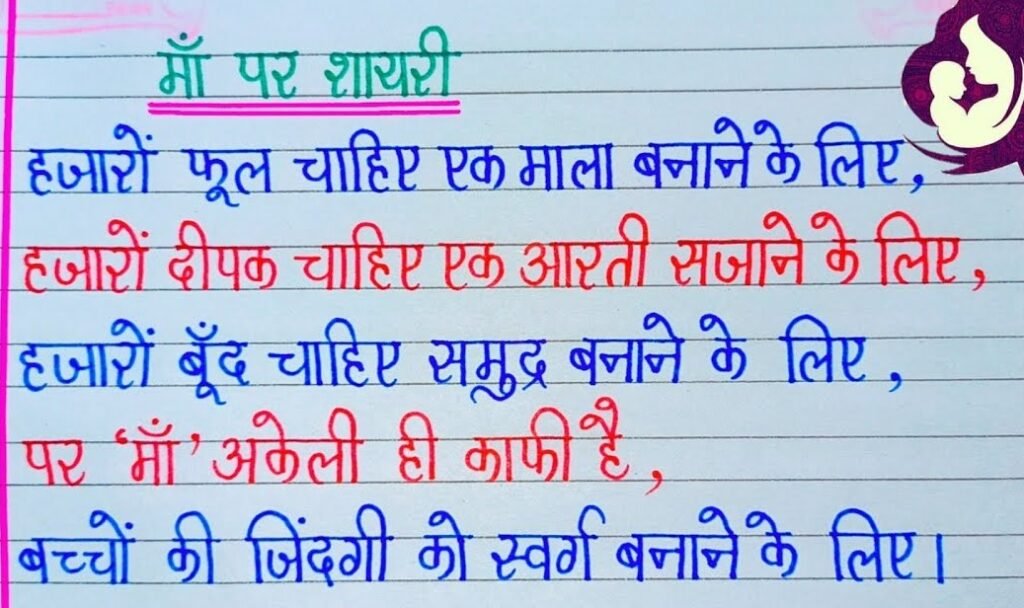 माँ पर शायरी
हजारों फूल चाहिए एक माला बनाने के लिए,
हजारों दीपक चाहिए एक आरती सजाने के लिए,
हजारों बूँद चाहिए समुद्र बनाने के लिए,
पर 'माँ' अकेली ही काफी है,
बच्चों की जिंदगी को स्वर्ग बनाने के लिए।